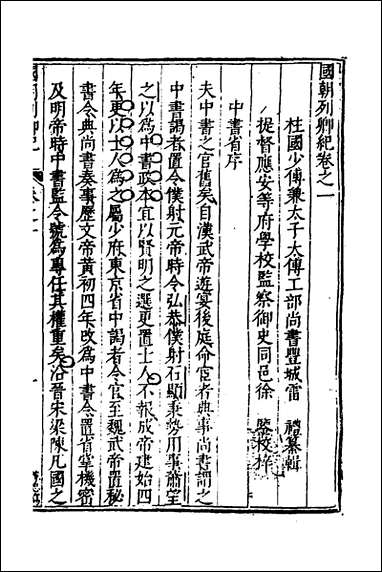 國朝列卿紀卷之一
柱國少傅兼太子太傅工部尚書豐城雷　禮纂輯
提督應安等府學校監察御史同邑徐　鑒校梓
中書省序
夫中書之官舊矣自漢武帝遊宴後庭命宦者典事尚書謂之
中書謁者置令僕射元帝時令弘恭僕射石顯秉勢用事蕭望
之以為中書政本宜以賢明之選更置士人不報成帝建始四
年更以士人為之屬少府東京省中謁者令官至魏武帝置秘
書令典尚書奏事歷文帝黃初四年改為中書令置省掌機密
及明帝時中書監令號為專任其權重矣沿晉宋梁陳凡國之